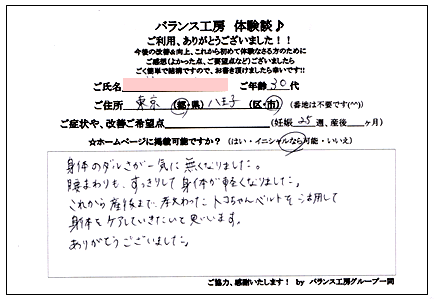 バランス工房 体験談♪
ご利用、ありがとうございました！！
今後の改善&向上、これから初めて体験なさる方のために
ご感想(よかった点、ご要望点など)ございましたら
ごく簡単で結構ですので、お書き頂けましたら幸いです!!
ご氏名 ご年齢 30 代
ご住所 東京 (都・県) 八王子 (区・市) (番地は不要です(^^))
ご症状や、改善ご希望点 (妊娠 25 週、産後 ヶ月)
☆ホームページに掲載可能ですか？ (はい・イニシャルなら可能・いいえ)
身体のダルさが一気に無くなりました。
腰まわりも、すっきりして身体が軽くなりました。
これから産後まで、教えて頂いたトコちゃんベルトを活用して
身体をケアしていきたいと思います。
ありがとうございました。
ご協力、感謝いたします！ by バランス工房グループ一同